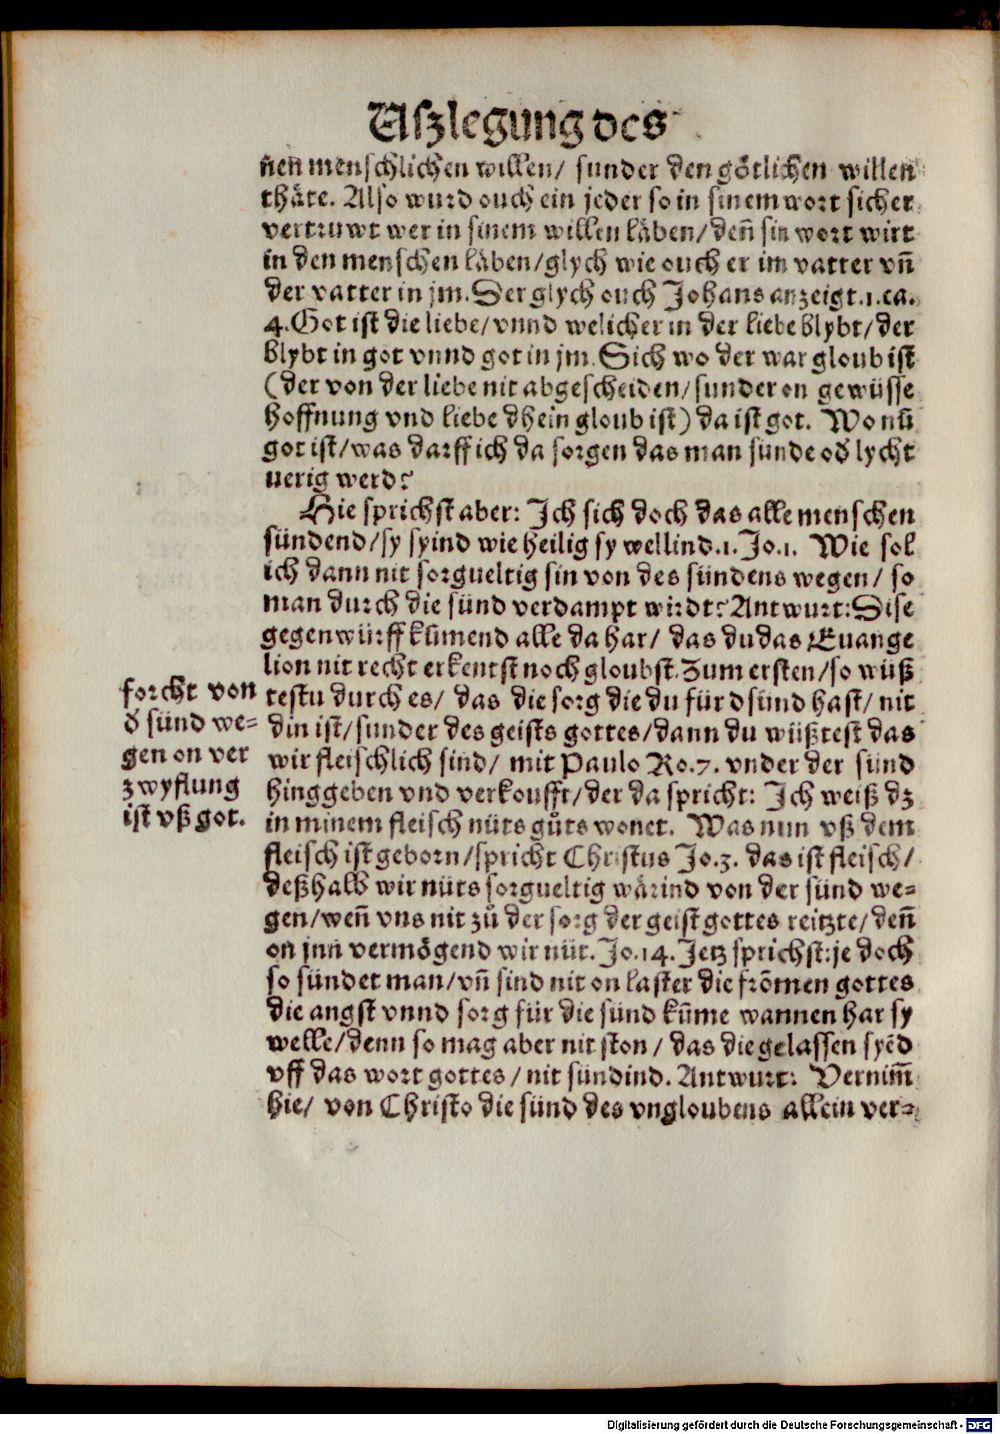 Uſzlegung des
ñen menschlichen willen/ sunder den götlichen willen
thäte. Also wurd ouch ein jeder so in sinem wort sicher
vertruwt wer in sinem willen läben/ deñ sin wort wirt
in den menschen läben/ glych wie ouch er im vatter vñ
der vatter in jm. Der glych ouch Johans anzeigt.1.ca.
4. Got ist die liebe/ vnnd welicher in der liebe blybt/ der
blybt in got vnnd got in jm. Sich wo der war gloub ist
(der von der liebe nit abgescheiden/ sunder on gewüsse
hoffnung vnd liebe dhein gloub ist) da ist got. Wo nũ
got ist/ was darff ich da sorgen das man sünde od̕ lycht
uerig werd?
Hie sprichst aber: Ich sich doch das alle menschen
sündend/ sy syind wie heilig sy wellind.1.Jo.1. Wie sol
ich dann nit sorgueltig sin von des sündens wegen/ so
man durch die sünd verdampt wirdt? Antwurt: Dise
gegenwürff kũmend alle da har/ das du das Euange
lion nit recht erkentst noch gloubst. Zum ersten/ so wüß
testu durch es/ das die sorg die du für d sünd hast/ nit
din ist/ sunder des geists gottes/ dann du wüßtest das
wir fleischlich sind/ mit Paulo Ro.7. vnder der sünd
hinggeben vnd verkoufft/ der da spricht: Ich weiß dz
in minem fleisch nüts gůts wonet. Was nun vß dem
fleisch ist geborn/ spricht Christus Jo.3. das ist fleisch/
deßhalb wir nüts sorgueltig wärind von der sünd we-
gen/ weñ vns nit zů der sorg der geist gottes reitzte/ deñ
on jnn vermögend wir nüt. Jo.14. Jetz sprichst: je doch
so sündet man/ vñ sind nit on laster die frõmen gottes
die angst vnnd sorg für die sünd kũme wannen har sy
welle/ denn so mag aber nit ston/ das die gelassen syẽd
vff das wort gottes/ nit sündind. Antwurt: Vernim̃
hie/ von Christo die sünd des vngloubens allein ver-
forcht von
d̕ sünd we-
gen on ver
zwyflung
ist vß got.
Digitalisierung gefördert durch die Deutsche Forschungsgemeinschaft - DFG